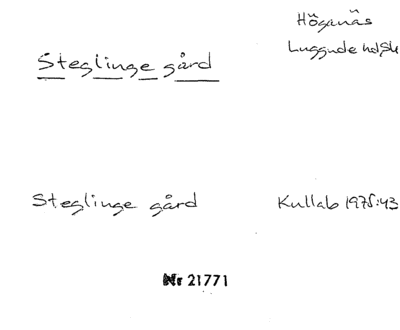 Höganäs
Luggude hd, Sk
Steglinge gård
Steglinge gård
Kullab 1975:43
Nr 21771